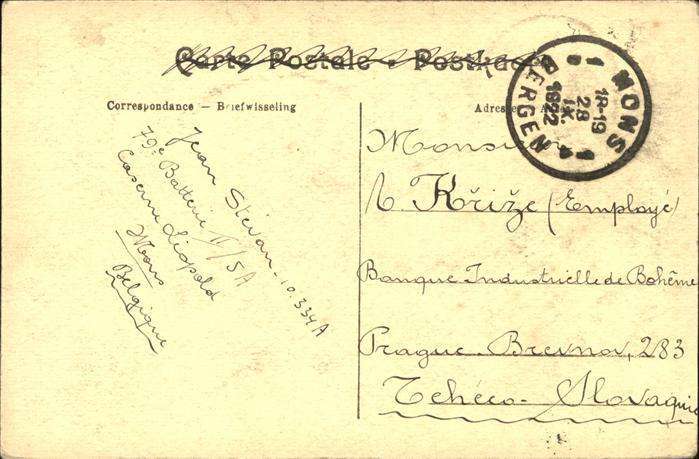 Carte Postale - Postkaart
Correspondance — Briefwisseling
Adresse
MONS
1 1
18-19
28
IX
1922
BERGEN
Jean Stévan. 10.334A
79e Batterie II/5A
Caserne Léopold
Mons
Belgique
Monsieur
Křiže (Employé)
Banque Industrielle de Bohême
Prague-Brevnov, 283
Tchéco-Slovaquie